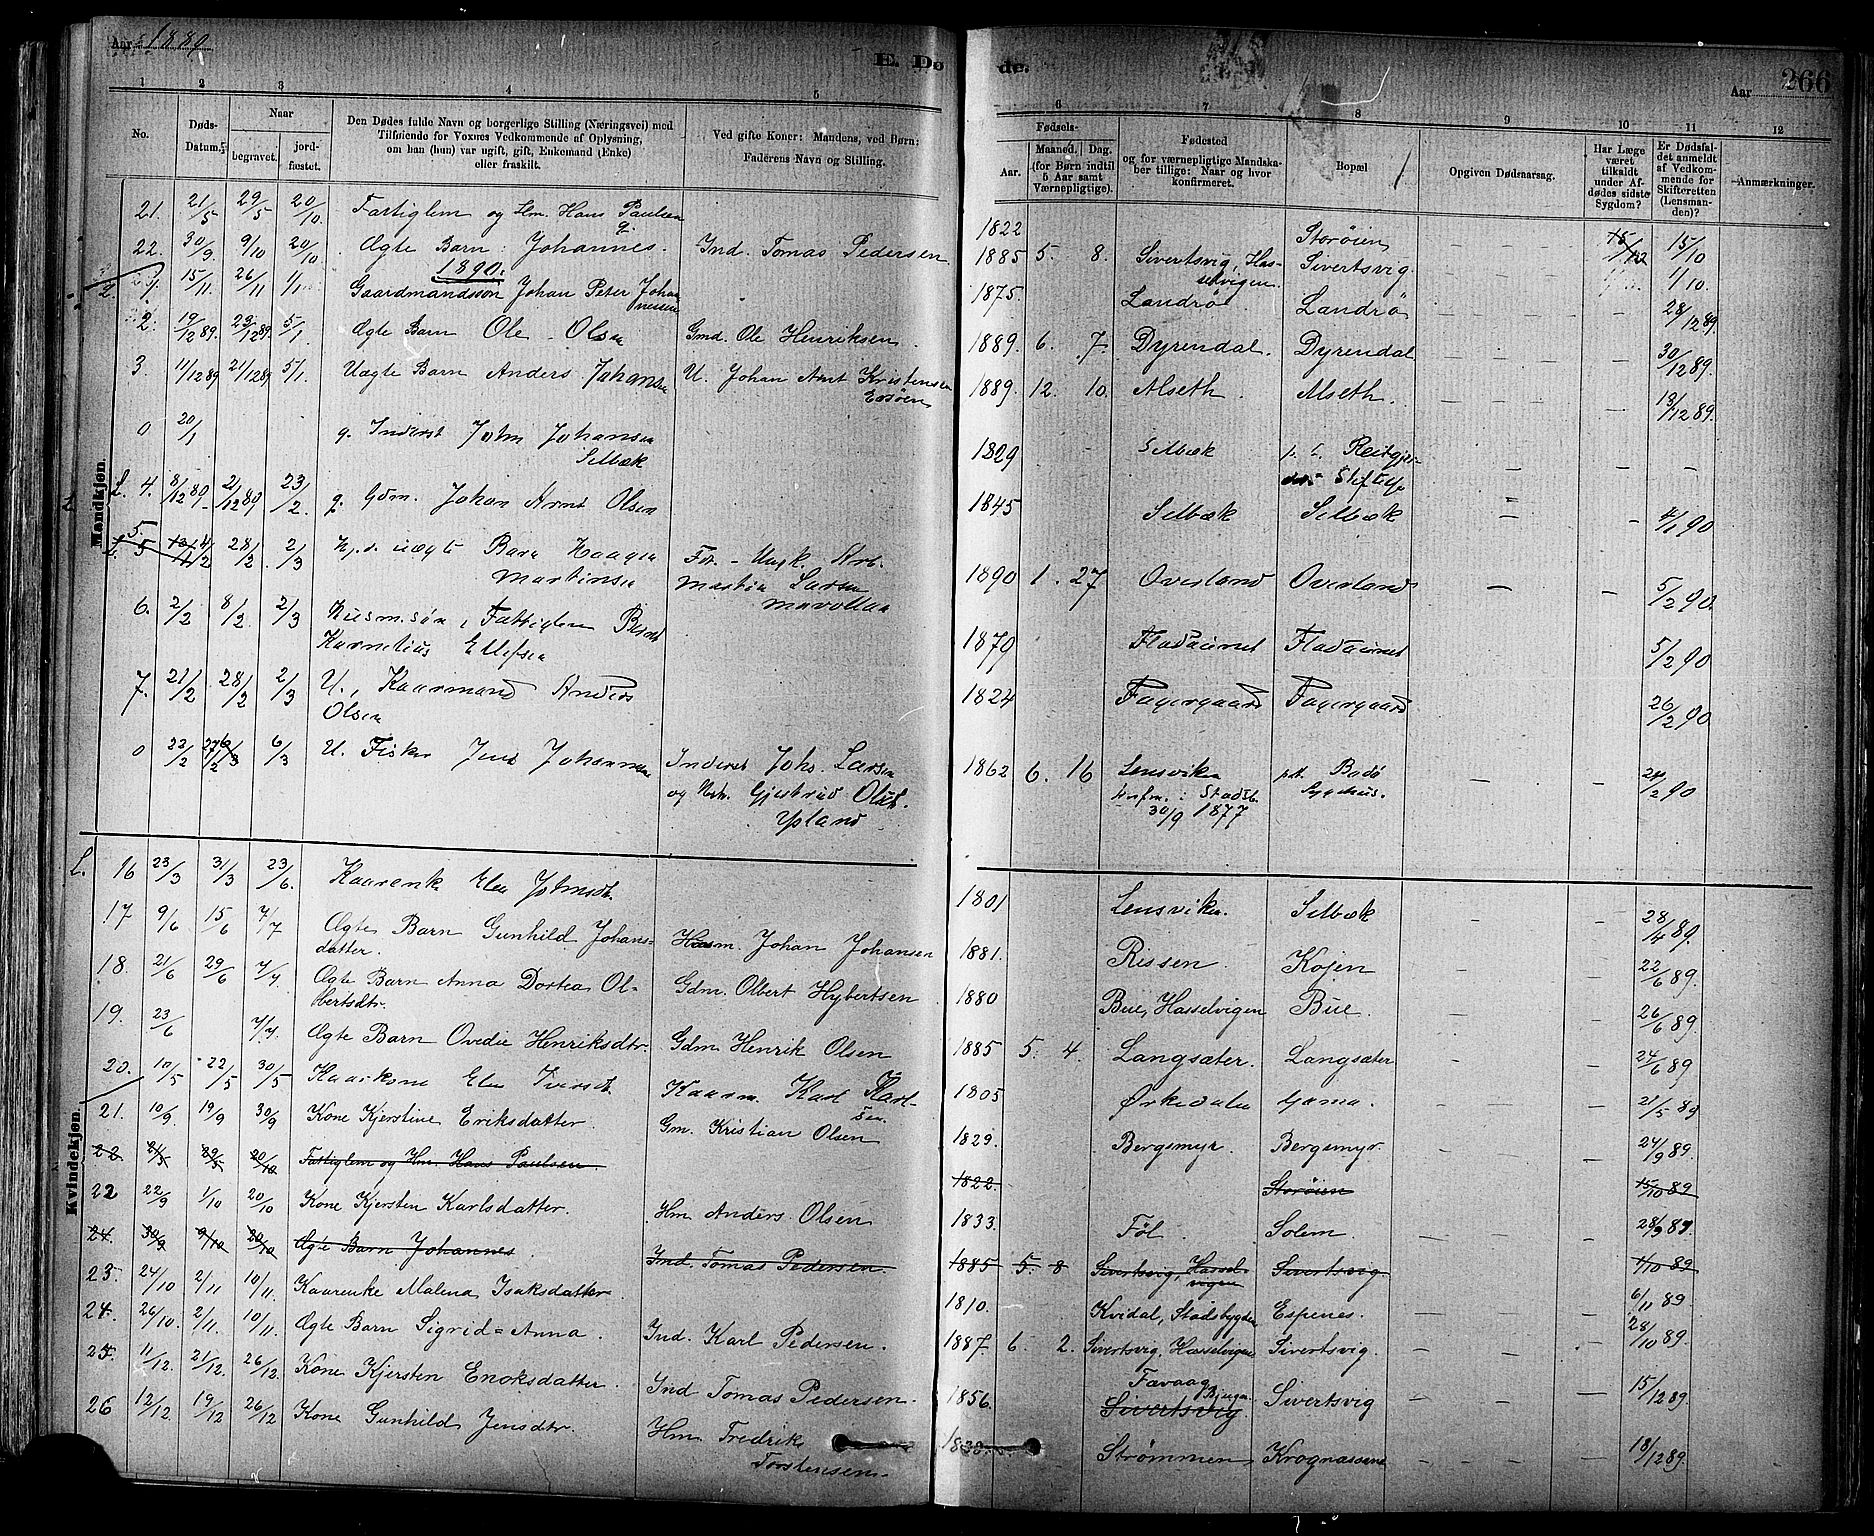 Aar 1889
E. Dø
de.
Aar
266
1 2 3 4 5 6 7 8 9 10 11 12
No.
Døds-
Datum.
Naar
begravet.
jord-
fæstet.
Den Dødes fulde Navn og borgerlige Stilling (Næringsvei) med
Tilføiende for Voxnes Vedkommende af Oplysning,
om han (hun) var ugift, gift, Enkemand (Enke)
eller fraskilt.
Ved gifte Koner: Mandens, ved Børn:
Faderens Navn og Stilling.
Fødsels-
Aar.
Maaned. Dag.
(for Børn indtil
5 Aar samt
Værnepligtige).
Fødested
og for værnepligtige Mandska-
ber tillige: Naar og hvor
konfirmeret.
Bopæl
Opgiven Dødsaarsag.
Har Læge
været
tilkaldt
under Af-
dødes sidste
Sygdom?
Er Dødsfal-
det anmeldt
af Vedkom-
mende for
Skifteretten
(Lensman-
den)?
Anmærkninger.
Mandkjøn.
21. 21/5 29/5 20/10 Fattiglem og Hm. Hans Paulsen 1822 Storøien 15/10
g.
22. 30/9 9/10 20/10 Ægte Barn: Johannes. Ind. Tomas Pedersen 1885 5. 8. Sivertsvig, Has-
selvigen. Sivertsvig. 1/10.
1890.
1. 15/11 26/11 1/1 Gaardmandssøn Johan Peter Johan
nessen 1875. Landrø Landrø 28/12 89
2. 19/12 89 23/12 89 5/1. Ægte Barn Ole Olsen Gmd. Ole Henriksen. 1889. 6. 7. Dyrendal. Dyrendal 30/12 89.
3. 11/12 89 21/12 89 5/1. Uægte Barn Anders Johansen U. Johan Arnt Kristensen 1889. 12. 10. Alseth. Alseth. 13/12 89.
0 20/1 g. Inderst John Johansen
Selbæk 1829 Selbæk
L. 4. 8/12 89 21/12 89 23/2 g. Gdm. Johan Arnt Olsen 1845 Selbæk Selbæk 4/1 90
5 28/2 2/3 Hj.d. uægte Barn Haagen
Martinsen Far - Ungk. Arb.
Martin Larsen 1890 1. 27 Overland Overland 5/2 90.
6. 2/2 8/2 2/3 Husm.søn, Fattiglem Bernt
Kornelius Ellefsen 1879 Fladaunet Fladaunet 5/2 90
7. 21/2 28/2 2/3 U., Kaarmand Anders
Olsen 1824 Fagergaard Fagergaard 26/2 90
0 22/2 6/3 U. Fisker Jens Johannesen Inderst Johs. Larsen
og Gjertrud Olsd.
Opland 1862 6. 16 Lensviken
konfm. i Stadsb.
30/9 1877 Bodø
Sygehus. 24/2 90
Kvindekjøn.
L. 16 23/3 31/3 23/6. Kaarenk Elen Johnsdt. 1801 Lensviken. Selbæk 28/4 89.
17 9/6 15/6 7/7 Ægte Barn Gunhild Johans-
datter. Husm. Johan Johansen 1881. Rissen. Kojen 22/6 89.
18. 21/6 29/6 7/7 Ægte Barn Anna Dortea Ol-
bertsdtr. Gdm. Olbert Hybertsen 1880 Bue, Hasselvigen Bue. 26/6 89.
19. 23/6 7/7 Ægte Barn Ovedie Henriksdtr. Gdm Henrik Olsen 1885 5. 4. Langsæter. Langsæter 24/6 89
20. 10/5 22/5 30/5 Kaarkone Elen Iversdt. Kaarm. Karl Karl-
sen. 1805 Ørkedalen 21/5 89
21. 10/9 19/9 30/9 Kone Kjerstine Eriksdatter. Gm. Kristian Olsen 1829. Bergsmyr. Bergsmyr. 24/9 89.
22 21/5 29/5 20/10 Fattiglem og Hm. Hans Paulsen 1822. Storøien 15/10 89
22 22/9 1/10 20/10 Kone Kjersten Karlsdatter. Hm. Anders Olsen 1833. Føl Solem. 28/9 89
24. 30/9 9/10 20/10 Ægte Barn Johannes Ind. Tomas Pedersen. 1885 5. 8 Sivertsvig, Hassel-
vigen Sivertsvig. 1/10 89
23. 24/10 2/11 10/11 Kaarenke Malena Isaksdatter 1810. Kvidal, Stadsbygden Espenes. 6/11 89
24. 26/10. 2/11. 10/11. Ægte Barn Sigrid=Anna. Ind. Karl Pedersen. 1887. 6. 2. Sivertsvig, Hasselvigen Sivertsvig. 28/10 89.
25. 11/12. 21/12. 26/12. Kone Kjersten Enoksdatter. Ind Tomas Pedersen. 1856. Sivertsvig Sivertsvig 15/12 89.
26 12/12. 19/12 26/12 Kone Gunhild Jensdtr. Hm. Fredrik
Torstensen. 1838. Strømmen, Krognæssene 18/12 89.